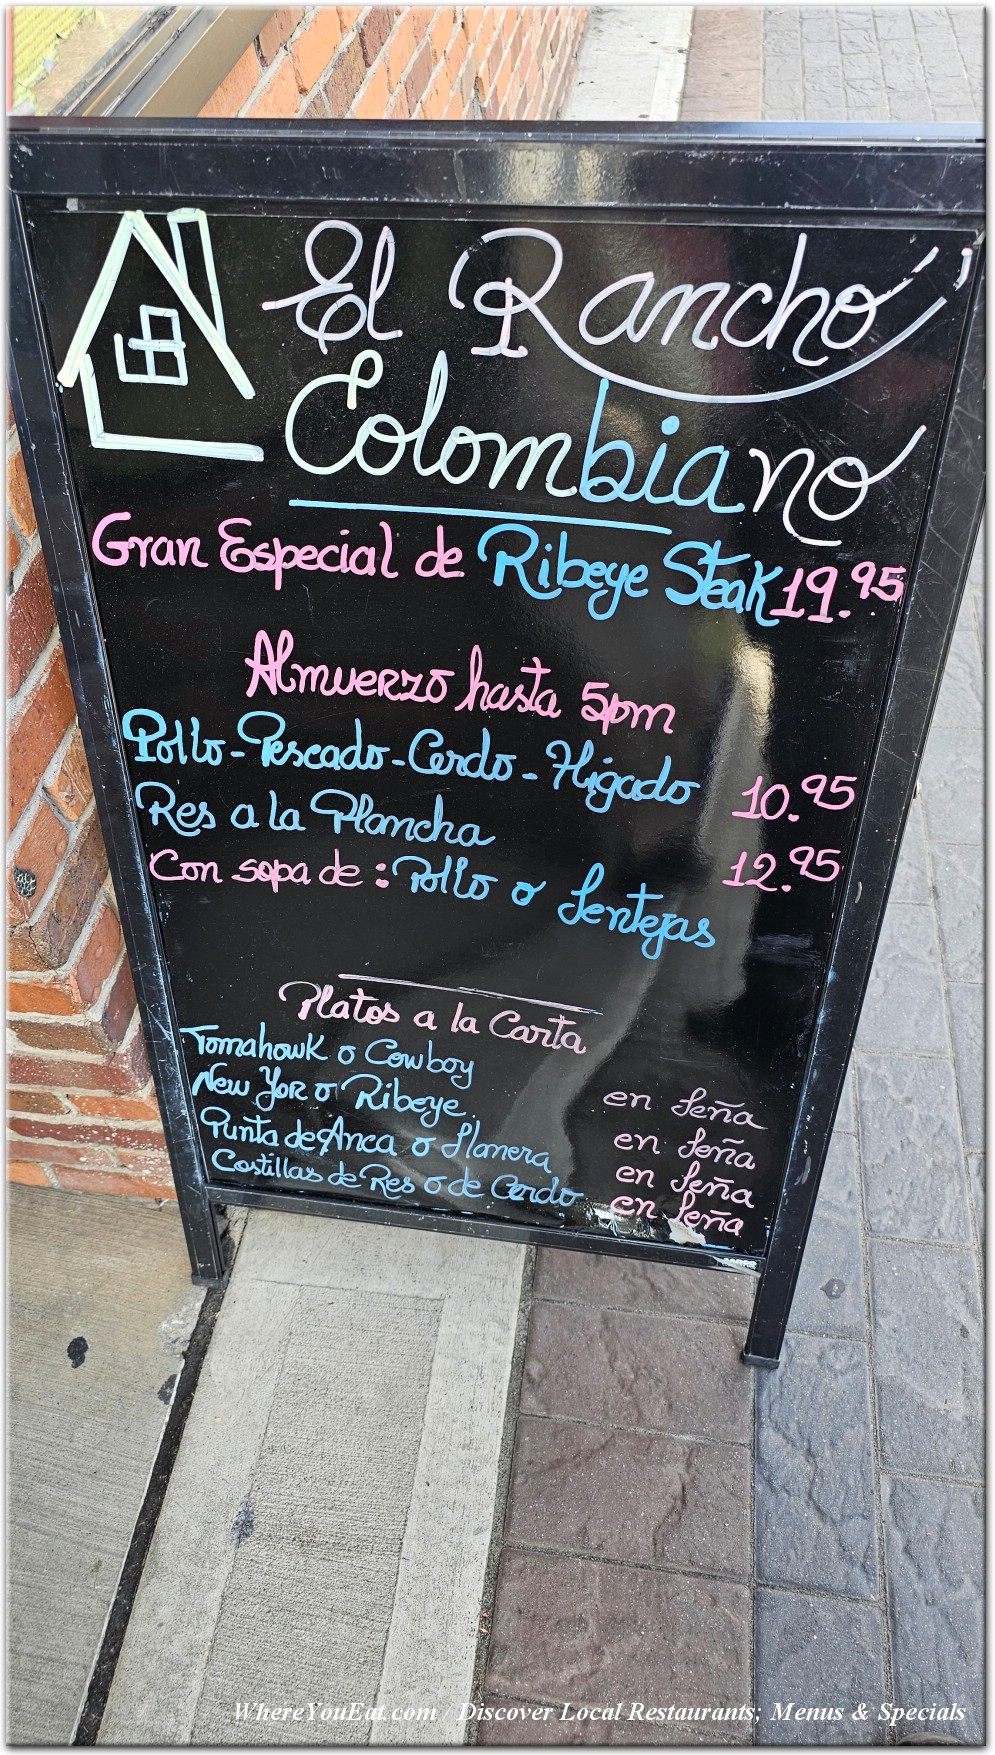 El Rancho
Colombiano
Gran Especial de Ribeye Steak 19.95
Almuerzo hasta 5pm
Pollo - Pescado - Cerdo - Higado 10.95
Res a la Plancha 12.95
Con sopa de: Pollo o Lentejas
Platos a la Carta
Tomahowk o Cowboy en Leña
New Yor o Ribeye en Leña
Punta de Anca o Llanera en Leña
Costillas de Res o de Cerdo en Leña
WhereYouEat.com / Discover Local Restaurants; Menus & Specials